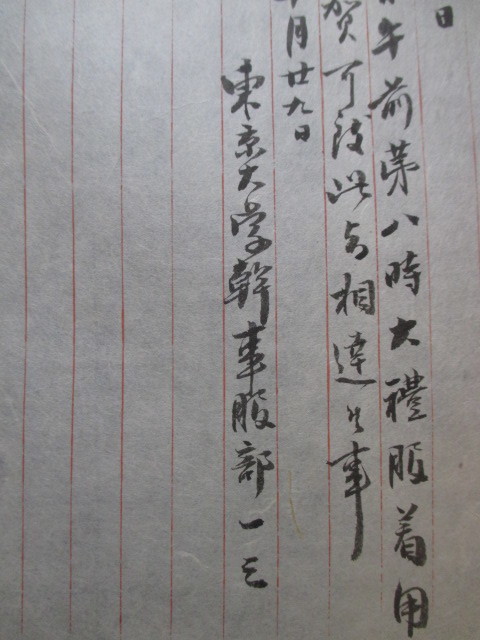 日
午前第八時大禮服着用
賀可致此旨相達候事
月廿九日
東京大学幹事服部一三